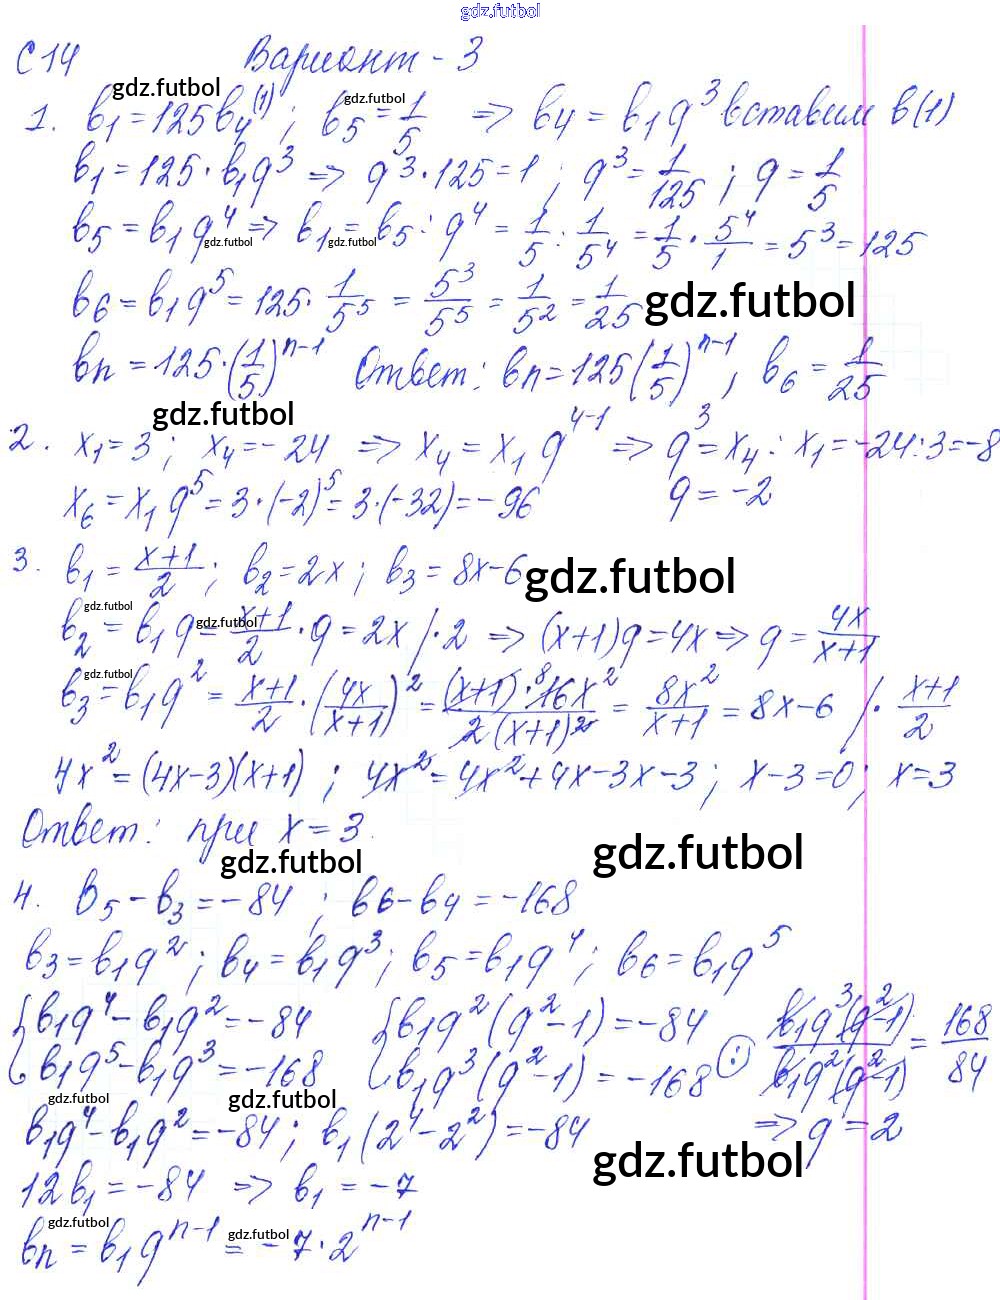 gdz.futbol
С14 Вариант-3
gdz.futbol
1. b₁=125b₄⁽¹⁾; b₅=1/5 => b₄=b₁q³ вставим в(1)
gdz.futbol
b₁=125·b₁q³ => q³·125=1; q³=1/125; q=1/5
b₅=b₁q⁴ => b₁=b₅:q⁴=1/5:1/5⁴=1/5·5⁴/1=5³=125
gdz.futbol gdz.futbol
b₆=b₁q⁵=125·1/5⁵=5³/5⁵=1/5²=1/25
gdz.futbol
bn=125·(1/5)ⁿ⁻¹ Ответ: bn=125(1/5)ⁿ⁻¹, b₆=1/25
gdz.futbol
2. x₁=3; x₄=-24 => x₄=x₁q⁴⁻¹ => q³=x₄:x₁=-24:3=-8
x₆=x₁q⁵=3·(-2)⁵=3·(-32)=-96 q=-2
3. b₁=(x+1)/2; b₂=2x; b₃=8x-6
gdz.futbol
gdz.futbol gdz.futbol
b₂=b₁q=(x+1)/2·q=2x /·2 => (x+1)q=4x => q=4x/(x+1)
gdz.futbol
b₃=b₁q²=(x+1)/2·(4x/(x+1))²=(x+1)·⁸16x²/2(x+1)²=8x²/(x+1)=8x-6 /·(x+1)/2
4x²=(4x-3)(x+1); 4x²=4x²+4x-3x-3; x-3=0; x=3
Ответ: при x=3.
gdz.futbol gdz.futbol
4. b₅-b₃=-84; b₆-b₄=-168
b₃=b₁q²; b₄=b₁q³; b₅=b₁q⁴; b₆=b₁q⁵
{b₁q⁴-b₁q²=-84 {b₁q²(q²-1)=-84 b₁q³(q²-1)/b₁q²(q²-1)=168/84
b₁q⁵-b₁q³=-168 b₁q³(q²-1)=-168 (:)
gdz.futbol gdz.futbol
b₁q⁴-b₁q²=-84; b₁(2⁴-2²)=-84 => q=2
gdz.futbol
12b₁=-84 => b₁=-7
gdz.futbol gdz.futbol
bn=b₁qⁿ⁻¹=-7·2ⁿ⁻¹